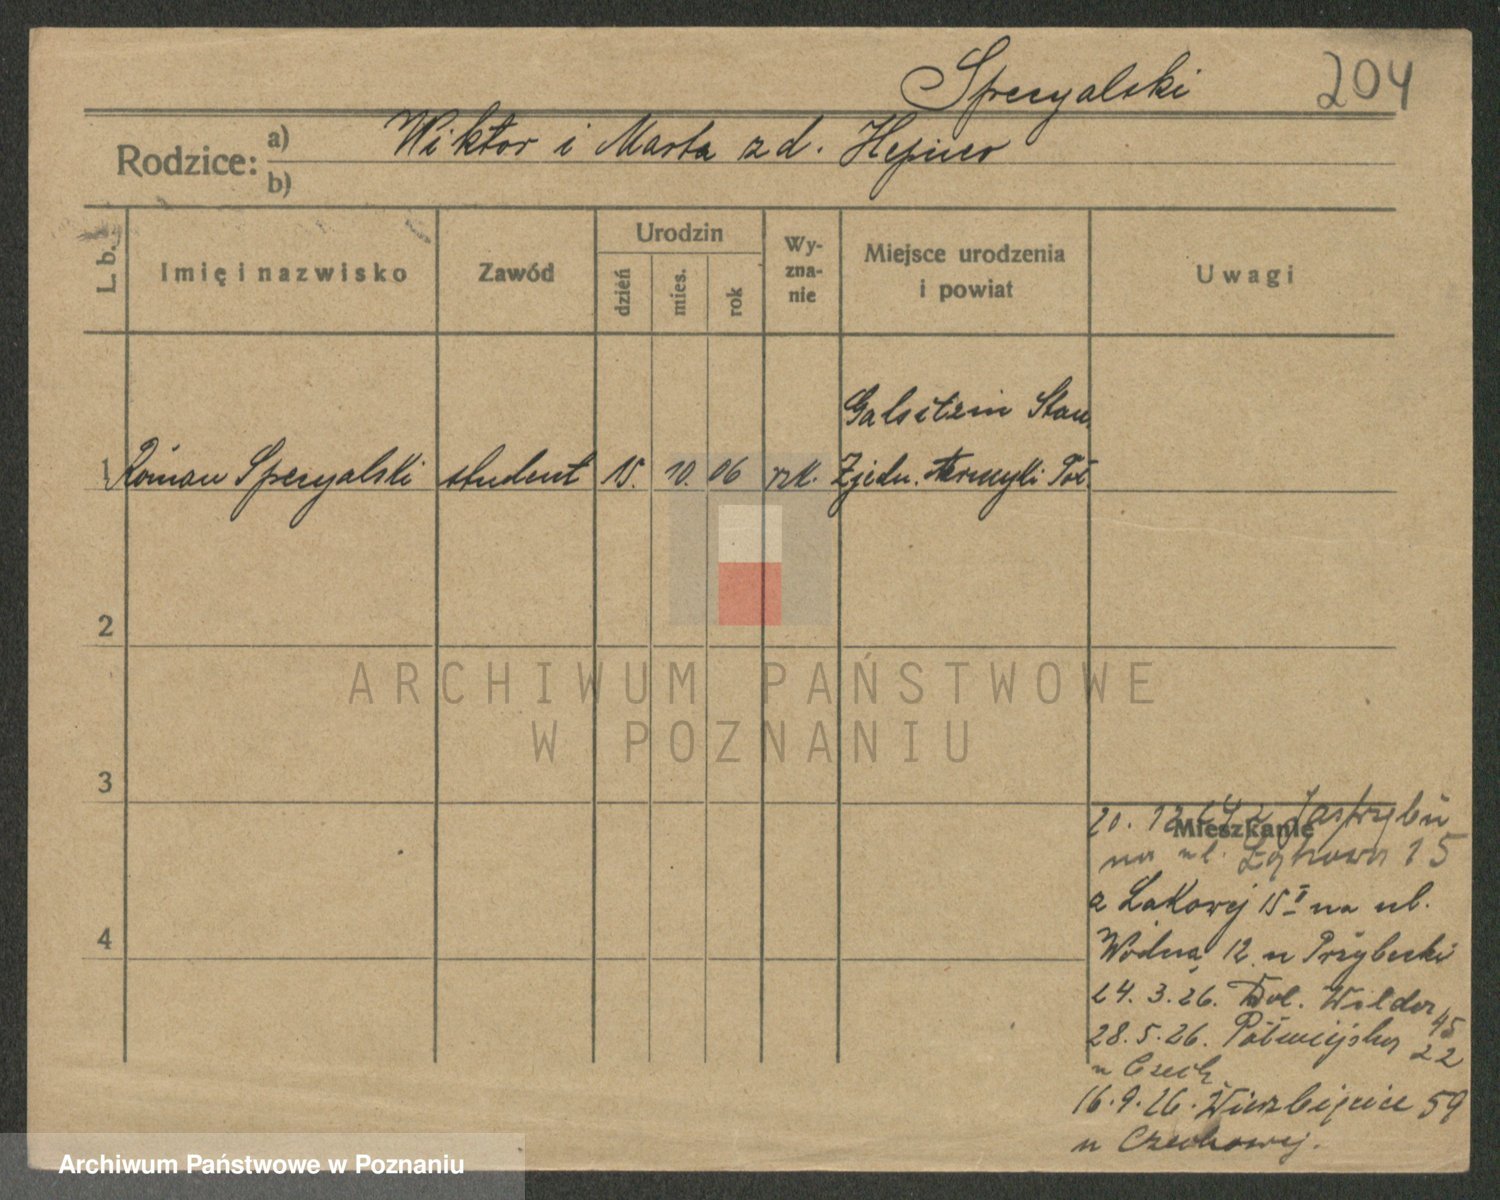 Specyalski 204
Rodzice: a) Wiktor i Marta z d. Hepner
b)
L. b. Imię i nazwisko Zawód Urodzin dzień mies. rok Wy-zna-nie Miejsce urodzenia i powiat Uwagi
Stan.
1 Roman Specyalski student 15. 10. 06 rzk. Zjedn. Ameryki Pół.
2
ARCHIWUM PAŃSTWOWE
W POZNANIU
3
Mieszkanie
20. 12 24 z Jastrzębia
na ul. Łąkowa 15
z Łąkowej 15 I na ul.
Wodną 12 u Przybecki
24. 3. 26. Dol. Wilda 45
28. 5. 26. Półwiejska 22
u Czech
16. 9. 26. Wierzbięcice 59
u Czechowej.
4
Archiwum Państwowe w Poznaniu